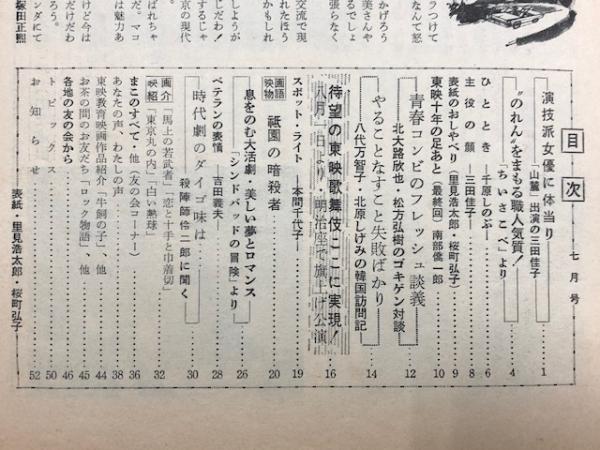 目次
七月号
演技派女優に体当り
「山麓」出演の三田佳子……1
“のれん”をまもる職人気質!
「ちいさこべ」より……4
ひととき 千原しのぶ……6
主役の顔 三田佳子……8
表紙のおしゃべり(里見浩太郎・桜町弘子)……9
東映十年の足あと(最終回)南部僑一郎……10
青春コンビのフレッシュ談義
北大路欣也・松方弘樹のゴキゲン対談……12
やることなすこと失敗ばかり
八代万智子・北原しげみの韓国訪問記……14
待望の東映歌舞伎ここに実現!
八月一日より・明治座で旗上げ公演……16
スポット・ライト―本間千代子……19
映画物語 祇園の暗殺者……20
息をのむ大活劇・美しい夢とロマンス
「シンドバッドの冒険」より……26
ベテランの表情 吉田義夫……28
時代劇のダイゴ味は
殺陣師伶二郎に聞く……30
映画紹介「馬上の若武者」「恋と十手と巾着切」
「東京丸の内」「白い熱球」……32
まこのすべて・他(友の会コーナー)……36
あなたの声、わたしの声……38
東映教育映画作品紹介「牛飼の子」、他……44
お茶の間のお友だち「ロック物語」、他……45
各地の友の会から……46
トピックス……50
お知らせ……52
表紙・里見浩太郎・桜町弘子